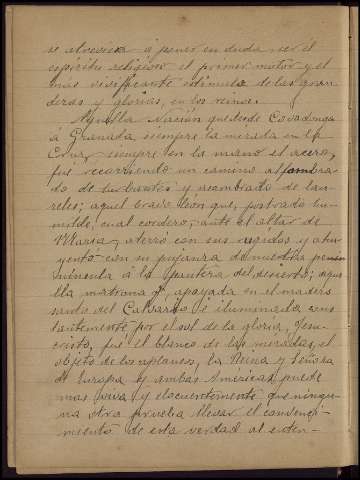 se atreviera á poner en duda, ser él
espíritu religioso el primer motor y el
mas vivificante estímulo de las gran-
dezas y glorias, en los reinos.
Aquella Nación que desde Covadonga
á Granada siempre la mirada en la
Cruz, siempre en la mano el acero,
fue recorriendo un camino alfombra
do de laureles y sembrado de lau-
reles; aquel bravo leon que, postrado hu-
milde, cual cordero, ante el altar de
Maria, aterró con sus rugidos y ahu-
yentó con su pujanza de nuestra penin
sula á la pantera del desierto; aque
lla matrona q., apoyada en el madero
santo del Calvario é iluminada cons
tantemente por el sol de la gloria, Jesu-
cristo, fué el blanco de las miradas, el
objeto de los aplausos, la Reina y Señora
de Europa y ambas Américas, puede
mas viva y elocuentemente que ningu-
na otra prueba llevar el convenci-
miento de esta verdad al enten-